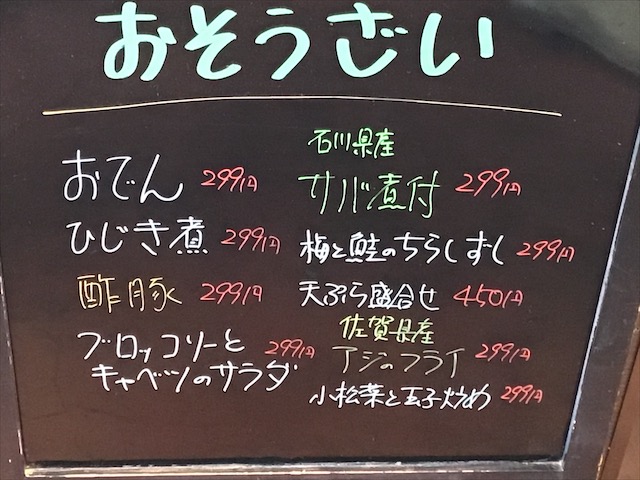 おそうざい
おでん 299円
ひじき煮 299円
酢豚 299円
ブロッコリーと
キャベツのサラダ 299円
石川県産
サバ煮付 299円
梅と鮭のちらしずし 299円
天ぷら盛合せ 450円
佐賀県産
アジのフライ 299円
小松菜と玉子炒め 299円